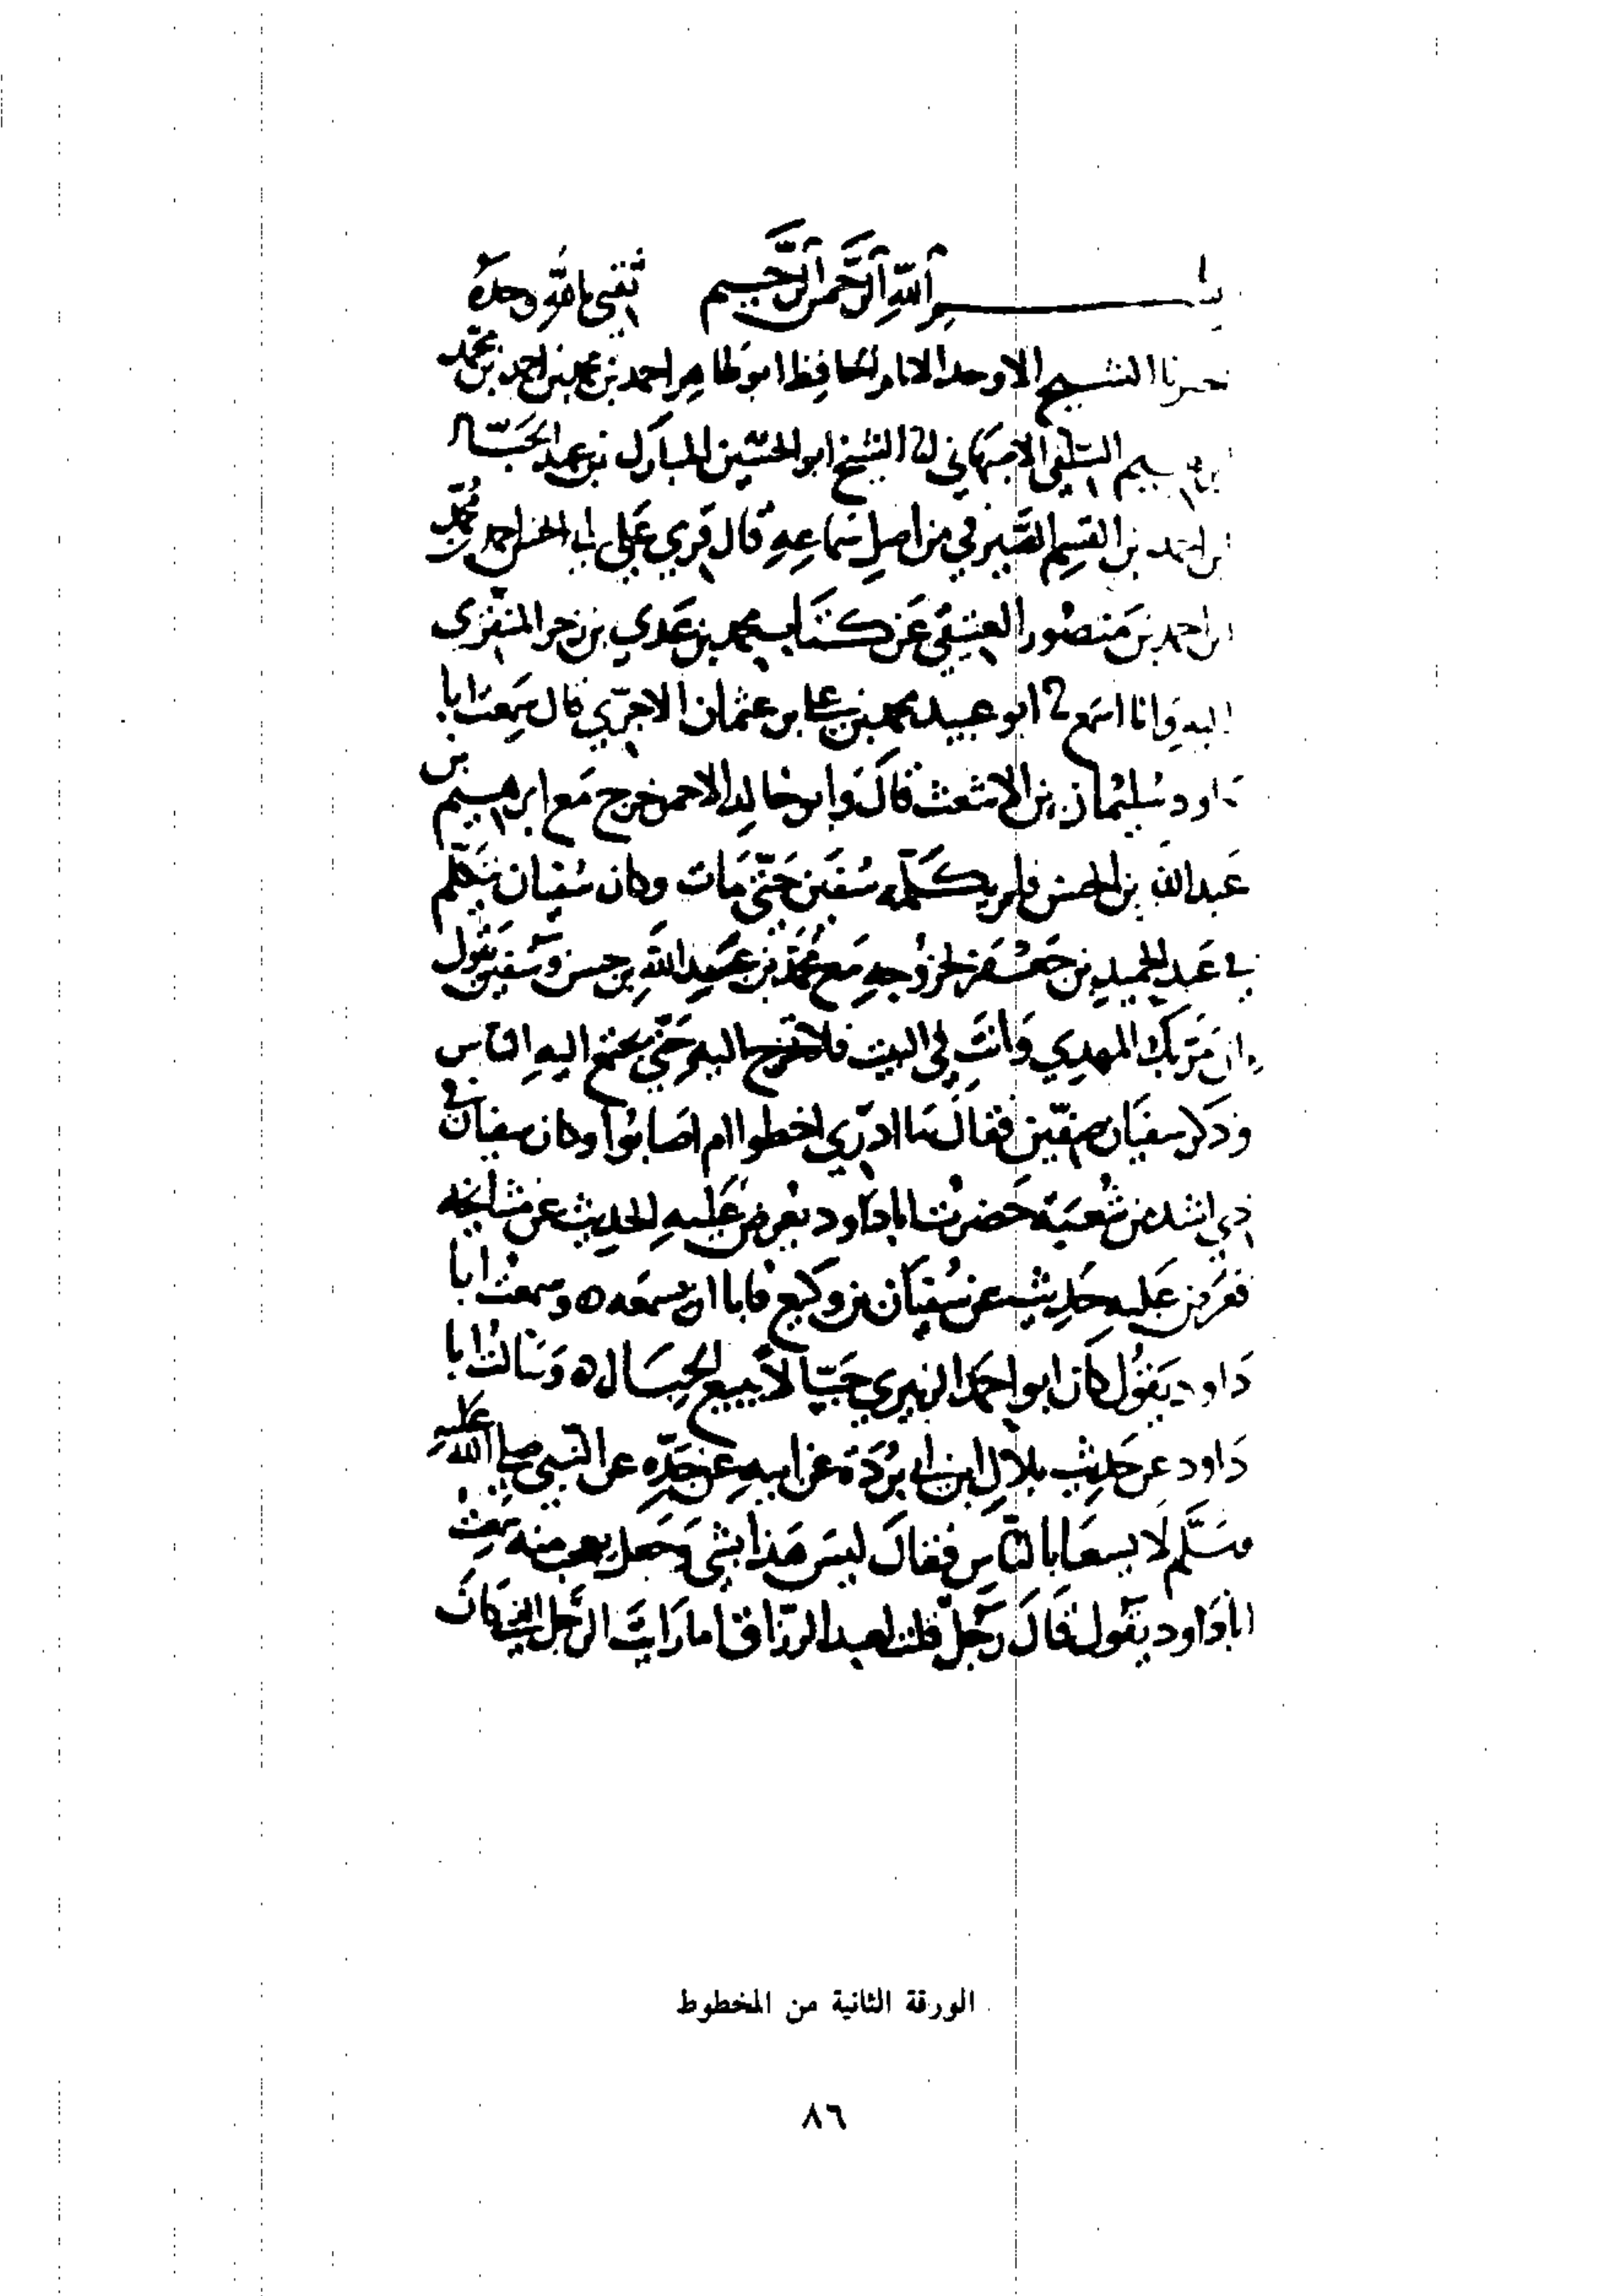 بسم الله الرحمن الرحيم ثقتي بالله وحده
خبرنا الشيخ الاوحد الامام الحافظ ابو طاهر احمد بن محمد بن احمد بن محمد
ابن ابرهيم السلفي الاصبهاني انا الشيخ ابو الحسين المبارك بن عبد الجبار
بن احمد بن القسم الصيرفي من اصل سماعه قال قري على ابي الحسن احمد بن محمد
بن احمد بن منصور العتيقي عن كتاب محمد بن عدي بن زحر المنقري
اليه وانا اسمع ابو عبيد محمد بن علي بن عثمان الاجري قال سمعت ابا
داود سليمان بن الاشعث قال وابو خالد الاحمر خرج مع ابرهيم بن
عبد الله بن الحسن فلم يكلمه سفين حتى مات وكان سفيان يتكلم
في عبد الحميد بن جعفر لخروجه مع محمد بن عبد الله بن حسن وسفين يقول
ان مر بك المهدي وانت في البيت فلا تخرج اليه حتى يجتمع اليه الناس
وذكر سفيان صفين فقال ما ادري اخطوا ام اصابوا وكان سفيان في
ذي اشد من شعبة حضرت ابا داود يعرض عليه الحديث عن مشايخه
فعرض عليه حديث عن سفيان بن وكيع فابا ان يسمعه ه وسمعت ابا
داود يقول كان ابو احمد الزبيري حبالا يبيع الحبال ه وسالت ابا
داود عن حديث بلال ابن ابي بردة عن ابيه عن جده عن النبي صلى الله عليه
وسلم لا يسعا بالناس فقال ليس هذا بشي وجعل يعجب منه سمعت
ابا داود يقول قال رجل قلت لعبد الرزاق اما رايت الرجل الذي كان
الورقة الثانية من المخطوط
٨٦